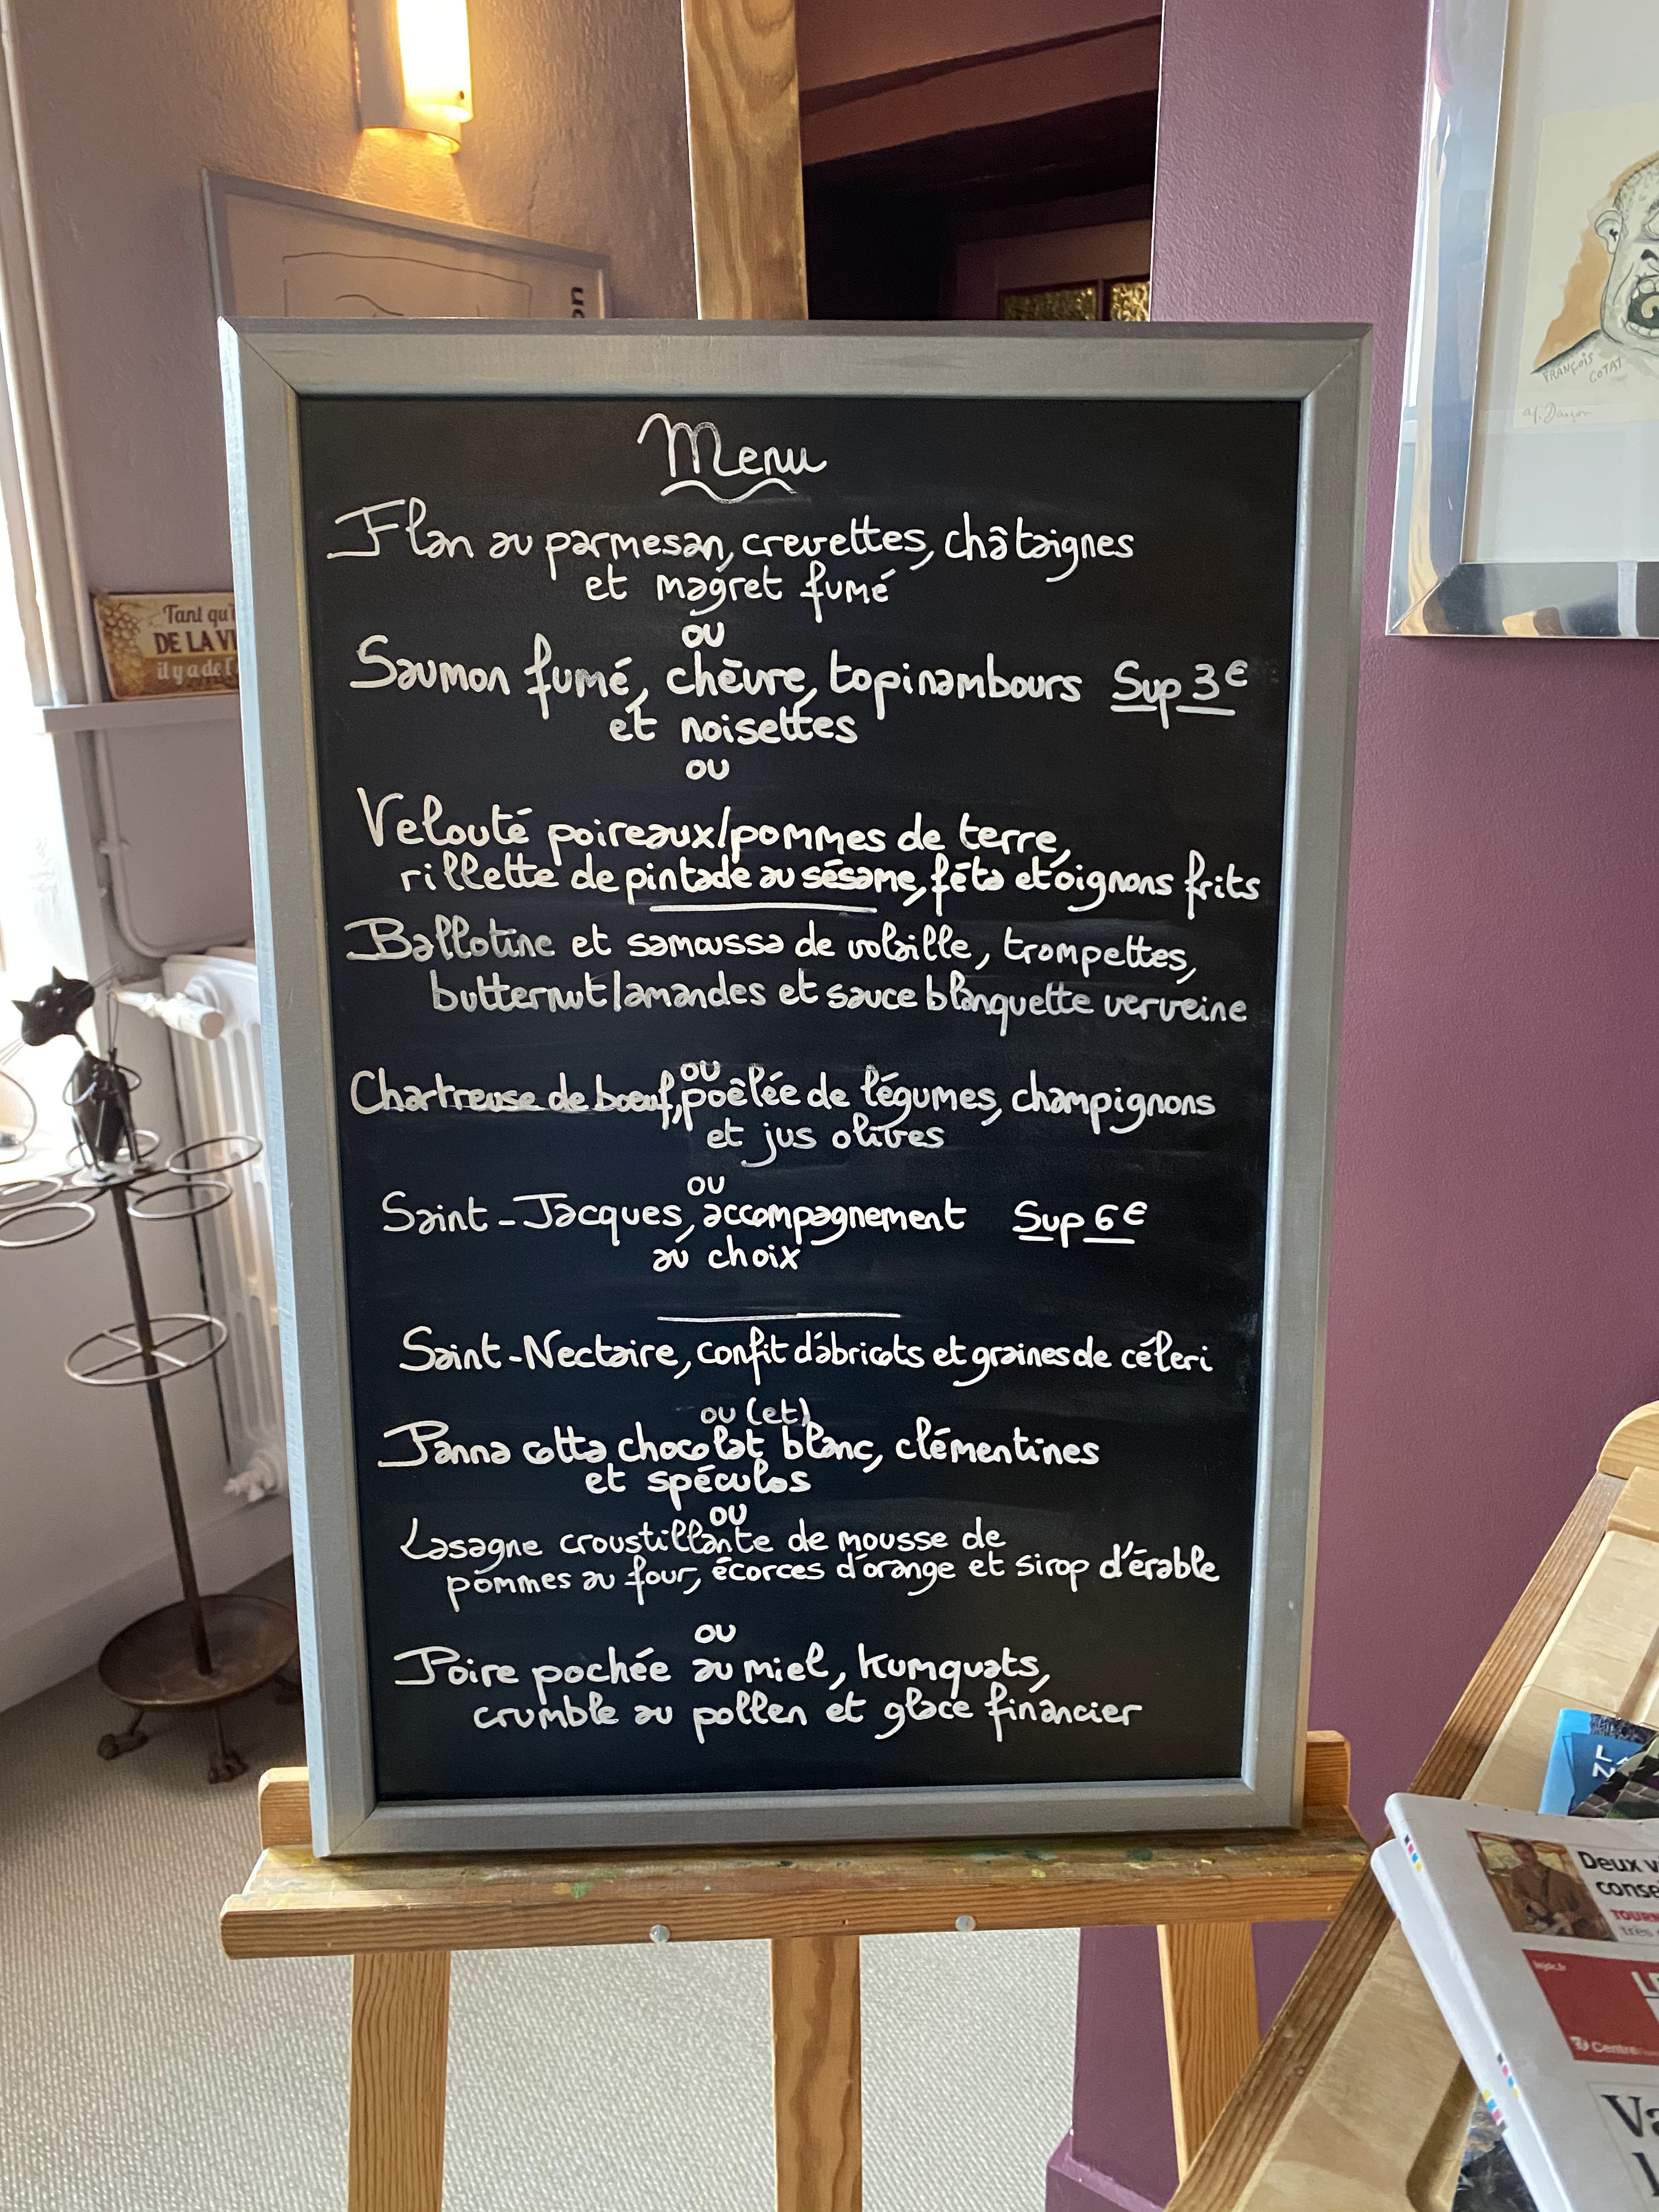 Menu
Flan au parmesan, crevettes, châtaignes
et magret fumé
ou
Saumon fumé, chèvre, topinambours Sup 3€
et noisettes
ou
Velouté poireaux/pommes de terre,
rillette de pintade au sésame, féta et oignons frits
Ballotine et samoussa de volaille, trompettes,
butternut/amandes et sauce blanquette verveine
ou
Chartreuse de bœuf, poêlée de légumes, champignons
et jus olives
ou
Saint-Jacques, accompagnement Sup 6€
au choix
Saint-Nectaire, confit d'abricots et graines de céleri
ou (et)
Panna cotta chocolat blanc, clémentines
et spéculos
ou
Lasagne croustillante de mousse de
pommes au four, écorces d'orange et sirop d'érable
ou
Poire pochée au miel, kumquats,
crumble au pollen et glace financier
Tant qu'i
DE LA VI
il y a de l'
FRANÇOIS
COTAT
Deux vi
conse
TOURN
très
Centre
Va